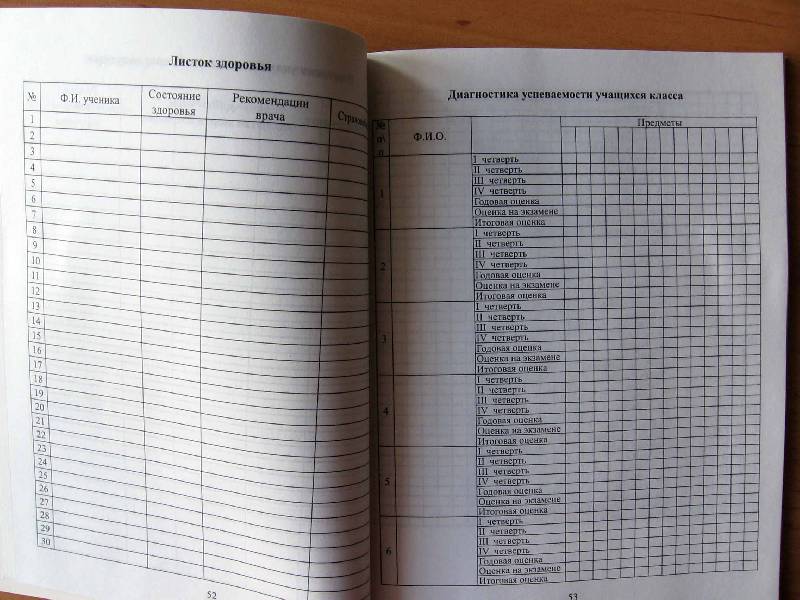 Листок здоровья
№ Ф.И. ученика Состояние здоровья Рекомендации врача
1
2
3
4
5
6
7
8
9
10
11
12
13
14
15
16
17
18
19
20
21
22
23
24
25
26
27
28
29
30
52
Диагностика успеваемости учащихся класса
№ п\п Ф.И.О. Предметы
1
I четверть
II четверть
III четверть
IV четверть
Годовая оценка
Оценка на экзамене
Итоговая оценка
2
I четверть
II четверть
III четверть
IV четверть
Годовая оценка
Оценка на экзамене
Итоговая оценка
3
I четверть
II четверть
III четверть
IV четверть
Годовая оценка
Оценка на экзамене
Итоговая оценка
4
I четверть
II четверть
III четверть
IV четверть
Годовая оценка
Оценка на экзамене
Итоговая оценка
5
I четверть
II четверть
III четверть
IV четверть
Годовая оценка
Оценка на экзамене
Итоговая оценка
6
I четверть
II четверть
III четверть
IV четверть
Годовая оценка
Оценка на экзамене
Итоговая оценка
53